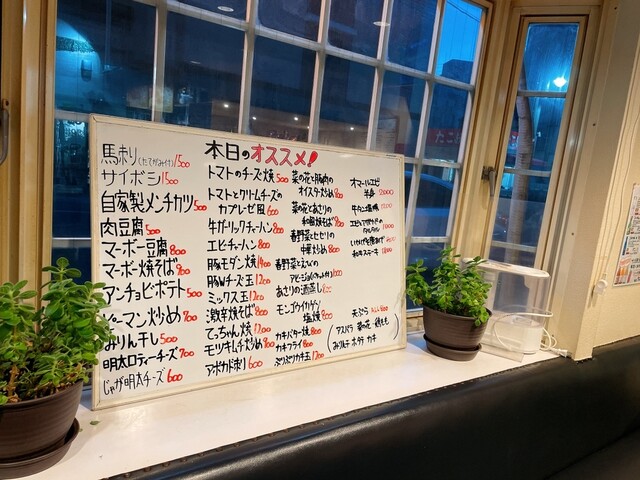 本日のオススメ!
馬刺し(たてがみ付)1500
サイボシ1500
自家製メンチカツ500
肉豆腐500
マーボー豆腐800
マーボー焼そば900
アンチョビポテト500
ピーマン炒め700
みりん干し500
明太ロティーチーズ700
じゃが明太チーズ600
トマトのチーズ焼500
トマトとクリームチーズの
カプレーゼ風600
牛ガーリックチャーハン800
エビチャーハン800
豚モダン焼1400
豚Wチーズ玉1200
ミックス玉1200
激辛焼そば800
てっちゃん焼1200
モツキムチ炒め800
アボカドポリ600
菜の花と豚肉の
オイスター炒め800
菜の花とあさりの
和風焼そば
春野菜とセセリの
中華炒め800
春野菜とえびの
アヒージョ(バゲット付)1000
あさりの酒蒸し800
モンゴウイカゲソ
塩焼800
カキバター焼800
カキフライ800
ぷりぷりカキ玉1200
オマールエビ
半身2000
天ぷら
アスパラ 菜の花
みりんチ ホタテ カキ